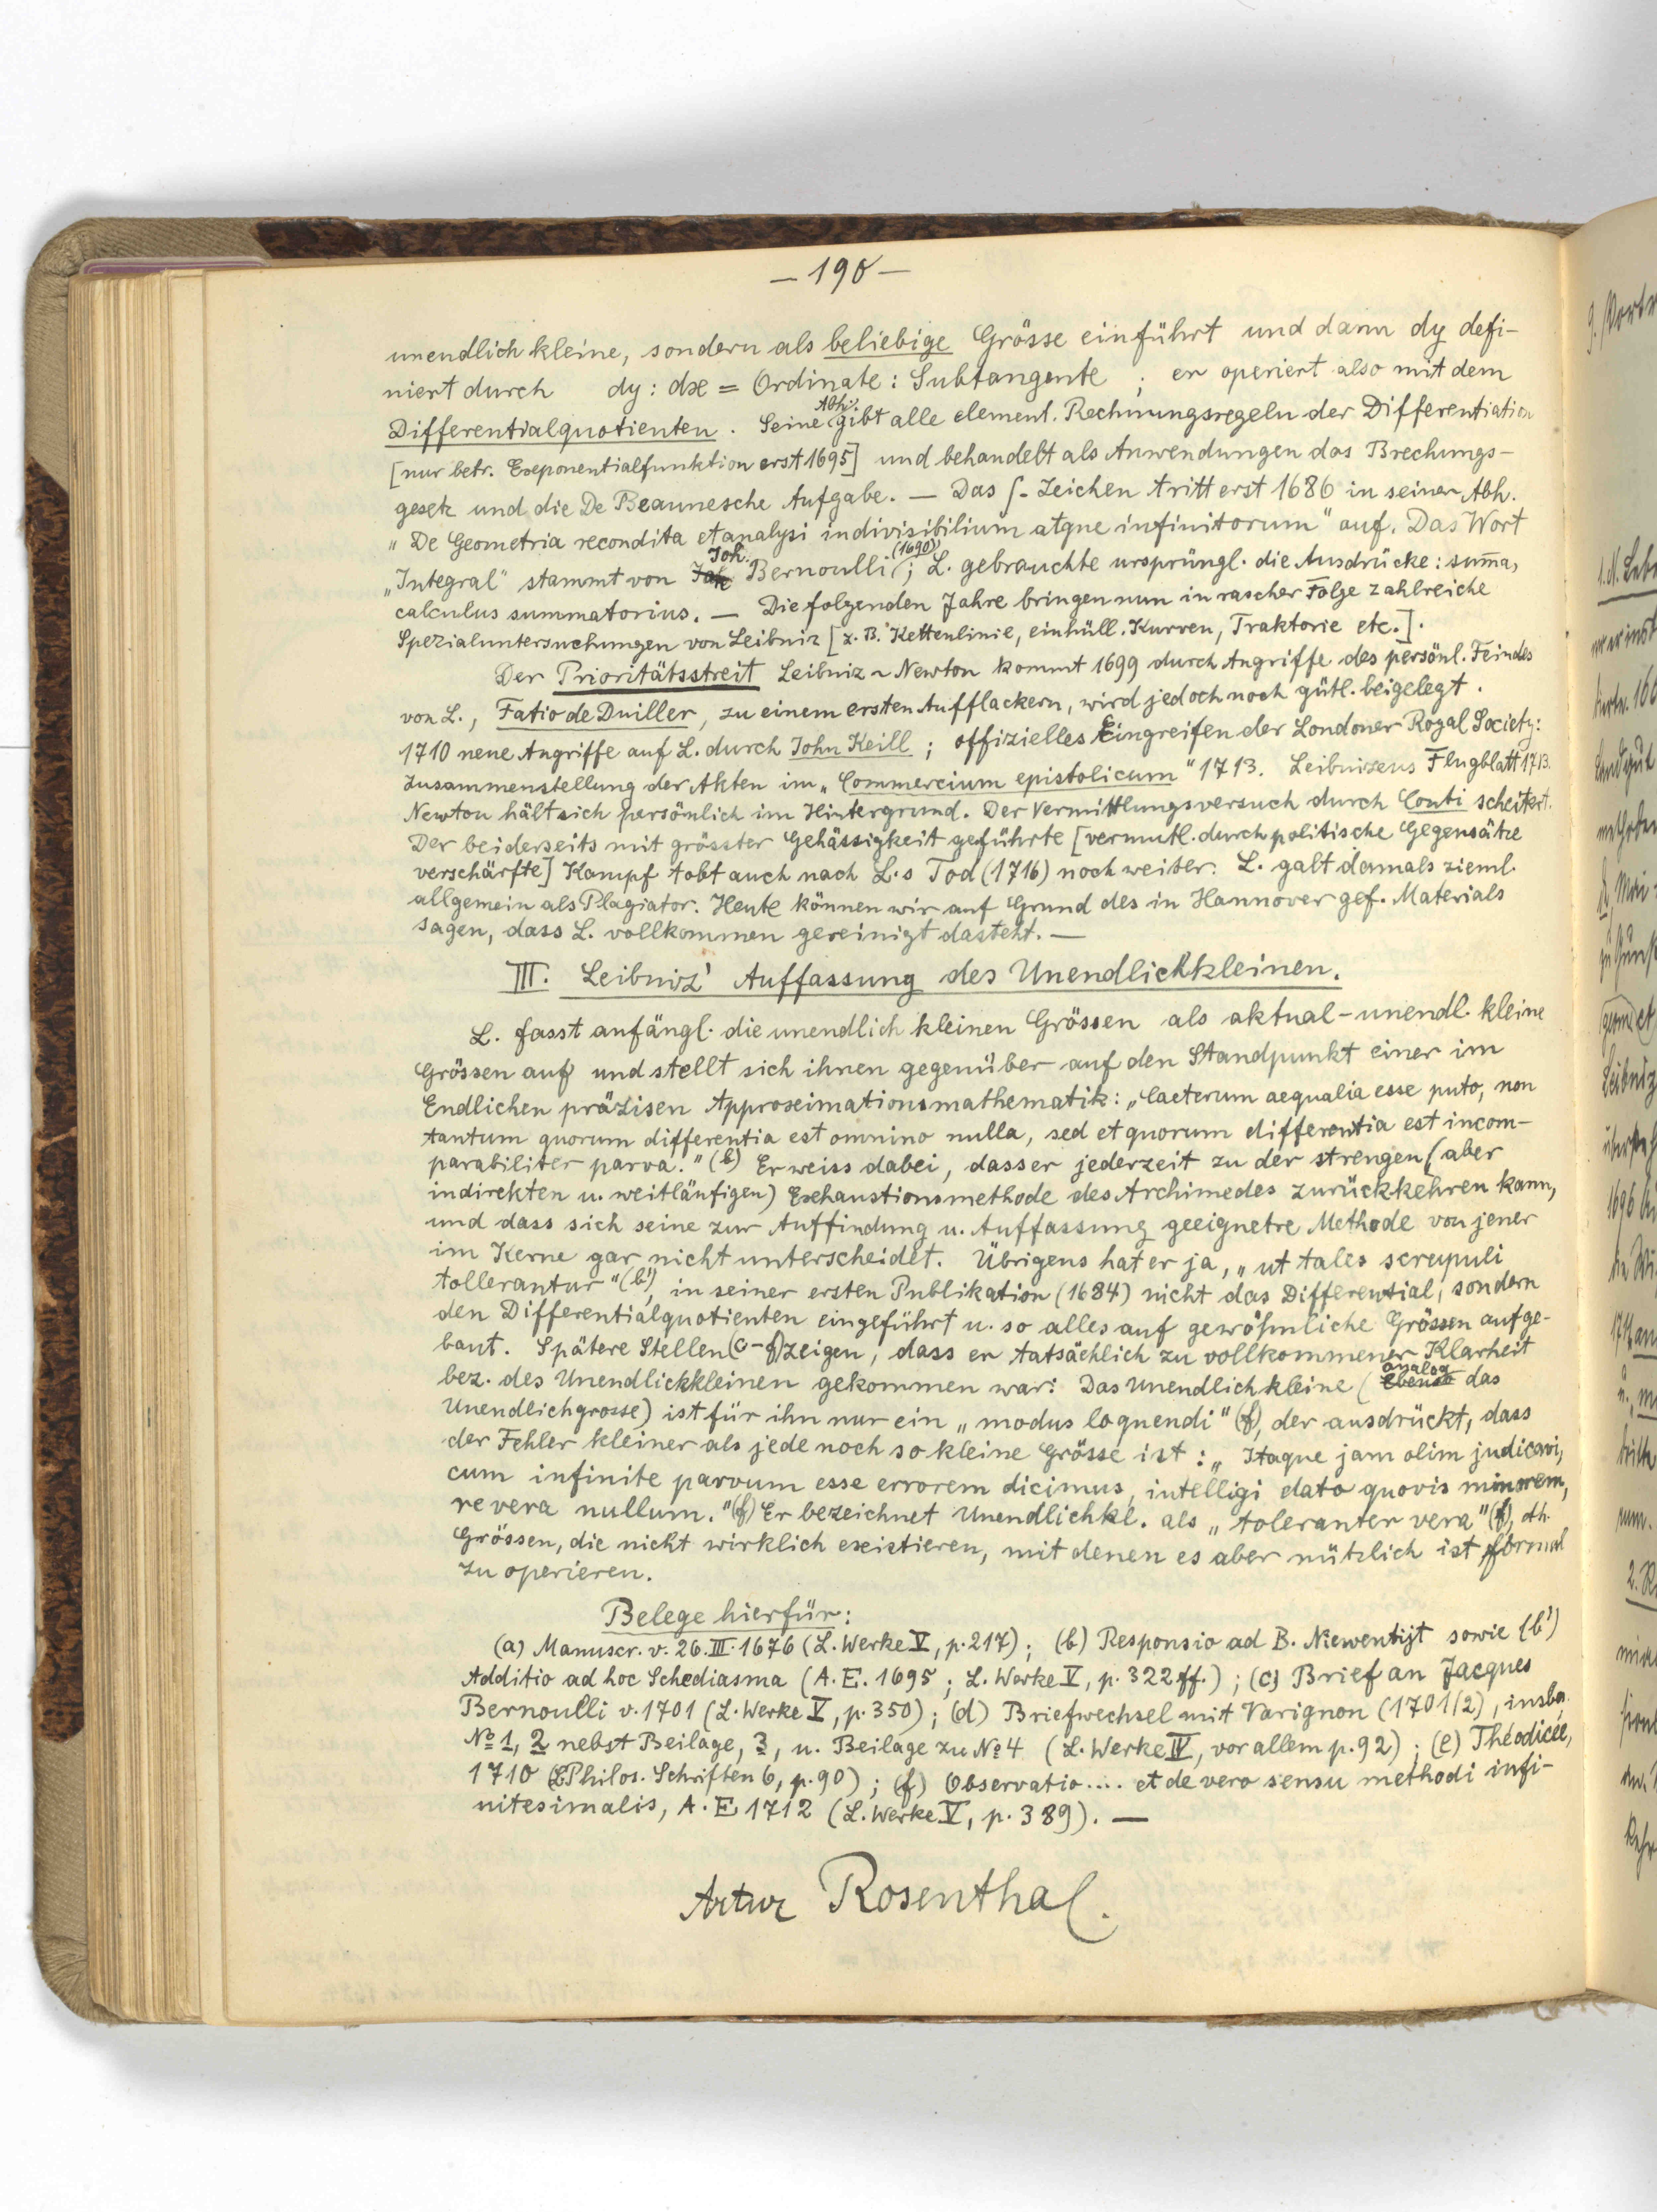 — 190 —
unendlich kleine, sondern als beliebige Grösse einführt und dann dy defi-
niert durch dy : dx = Ordinate : Subtangente ; er operiert also mit dem
Differentialquotienten. Seine Abh. gibt alle element. Rechnungsregeln der Differentiation
[nur betr. Exponentialfunktion erst 1695] und behandelt als Anwendungen das Brechungs-
gesetz und die De Beaunesche Aufgabe. — Das ∫-Zeichen tritt erst 1686 in seiner Abh.
„De Geometria recondita et analysi indivisibilium atque infinitorum" auf. Das Wort
„Integral" stammt von Joh. Bernoulli (1690); L. gebrauchte ursprüngl. die Ausdrücke: sum̄a,
calculus summatorius. — Die folgenden Jahre bringen nun in rascher Folge zahlreiche
Spezialuntersuchungen von Leibniz [z.B. Kettenlinie, einhüll. Kurven, Traktorie etc.].
Der Prioritätsstreit Leibniz ~ Newton kommt 1699 durch Angriffe des persönl. Feindes
von L., Fatio de Duiller, zu einem ersten Aufflackern, wird jedoch noch gütl. beigelegt.
1710 neue Angriffe auf L. durch John Keill ; offizielles Eingreifen der Londoner Royal Society:
Zusammenstellung der Akten im „Commercium epistolicum" 1713. Leibnizens Flugblatt 1713.
Newton hält sich persönlich im Hintergrund. Der Vermittlungsversuch durch Conti scheitert.
Der beiderseits mit grösster Gehässigkeit geführte [vermutl. durch politische Gegensätze
verschärfte] Kampf tobt auch nach L.s Tod (1716) noch weiter. L. galt damals zieml.
allgemein als Plagiator. Heute können wir auf Grund des in Hannover gef. Materials
sagen, dass L. vollkommen gereinigt dasteht. —
III. Leibniz' Auffassung des Unendlichkleinen.
L. fasst anfängl. die unendlich kleinen Grössen als aktual-unendl. kleine
Grössen auf und stellt sich ihnen gegenüber auf den Standpunkt einer im
Endlichen präzisen Approximationsmathematik: „Caeterum aequalia esse puto, non
tantum quorum differentia est omnino nulla, sed et quorum differentia est incom-
parabiliter parva." (b) Er weiss dabei, dass er jederzeit zu der strengen (aber
indirekten u. weitläufigen) Exhaustionsmethode des Archimedes zurückkehren kann,
und dass sich seine zur Auffindung u. Auffassung geeignetre Methode von jener
im Kerne gar nicht unterscheidet. Übrigens hat er ja, „ut tales scrupuli
tollerantur" (b'), in seiner ersten Publikation (1684) nicht das Differential, sondern
den Differentialquotienten eingeführt u. so alles auf gewöhnliche Grössen aufge-
baut. Spätere Stellen (c-f) zeigen, dass er tatsächlich zu vollkommener Klarheit
bez. des Unendlichkleinen gekommen war: Das Unendlichkleine (analog das
Unendlichgrosse) ist für ihn nur ein „modus loquendi" (f), der ausdrückt, dass
der Fehler kleiner als jede noch so kleine Grösse ist : „Itaque jam olim judicavi,
cum infinite parvum esse errorem dicimus, intelligi dato quovis minorem,
revera nullum." (f) Er bezeichnet Unendlichkl. als „toleranter vera" (f), dh.
Grössen, die nicht wirklich existieren, mit denen es aber nützlich ist formal
zu operieren.
Belege hierfür:
(a) Manuscr. v. 26.III.1676 (L. Werke V, p. 217) ; (b) Responsio ad B. Niewentijt sowie (b')
Additio ad hoc Schediasma (A.E. 1695 ; L. Werke V, p. 322 ff.) ; (c) Brief an Jacques
Bernoulli v. 1701 (L. Werke V, p. 350) ; (d) Briefwechsel mit Varignon (1701/2), insb.
No 1, 2 nebst Beilage, 3, u. Beilage zu No 4 (L. Werke IV, vor allem p. 92) ; (e) Théodicée,
1710 (Philos. Schriften 6, p. 90) ; (f) Observatio .... et de vero sensu methodi infi-
nitesimalis, A.E 1712 (L. Werke V, p. 389). —
Artur Rosenthal.